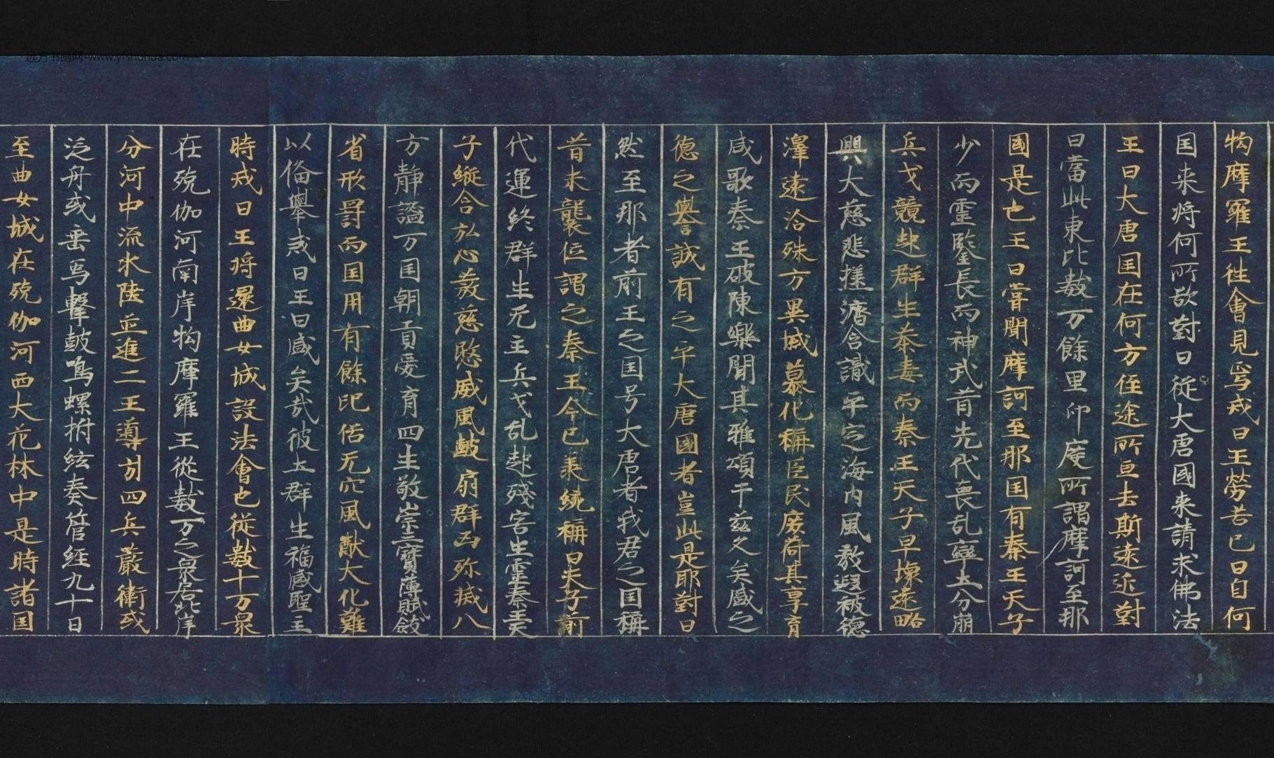 拘摩羅王往會見焉戒日王勞苦已曰自何
国来将何所欲對曰從大唐國来請求佛法
王曰大唐国在何方經途所亘去斯遠近對
曰當此東北數万餘里印度所謂摩訶至那
國是也王曰嘗聞摩訶至那国有秦王天子
少而靈鑒長而神武昔先代喪乱率土分崩
兵戈競起群生荼毒而秦王天子早懐遠略
興大慈悲拯濟含識平定海内風教遐被德
澤遠洽殊方異域慕化稱臣民庶荷其亭育
咸歌秦王破陳樂聞其雅頌于兹久矣盛之
德之譽誠有之乎大唐國者豈此是耶對曰
然至那者前王之国号大唐者我君之国稱
昔未襲位謂之秦王今已承統稱曰天子前
代運終群生无主兵戈乱起殘害生靈秦王天
子縱含弘心發慈愍威風皷扇群凶殄滅八
方靜謐万国朝貢愛育四生敬崇三寶薄賦斂
省形罸而国用有餘氓俗无宄風猷大化難
以俻舉戒日王曰盛矣哉彼土群生福感聖主
時戒日王将還曲女城設法會也從數十万衆
在殑伽河南岸拘摩羅王從數万之衆居北岸
分河中流水陸並進二王導引四兵嚴衛或
泛舟或乗焉擊鼓鳴螺拊絃奏管經九十日
至曲女城在殑伽河西大花林中是時諸国